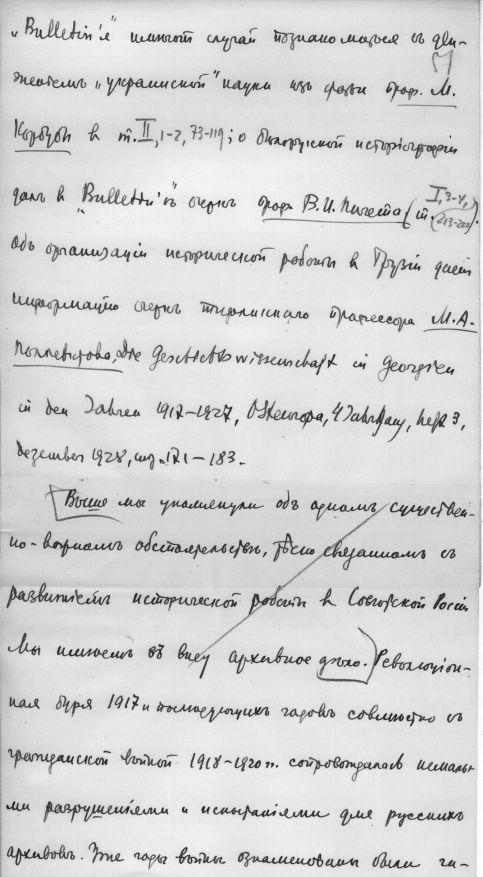 „Bulletin'я" имеютъ случай познакомиться съ дви-
57
жениемъ „украинской" науки изъ статьи проф. М.
Кордубы в т. II, 1-2, 73-119; о белорусской историографiи
далъ в „Bulletin'ѣ" очеркъ проф. В. И. Пичета (т. I, 3-4, 213-222).
Объ организацiи исторической работы в Грузiи даетъ
информацию очеркъ тифлисскаго профессора М. А.
Полiевктова, Die Geschichtswissenschaft in Georgien
in den Jahren 1917-1927, Osteuropa, 4 Jahrgang, Heft 3,
Dezember 1928, стр. 171-183.
Выше мы упомянули объ одномъ существен-
но-важномъ обстоятельствѣ, тѣсно связанномъ съ
развитiемъ исторической работы в Совѣтской Россiи
Мы имѣемъ въ виду архивное дѣло. Революцiон-
ная буря 1917 и последующихъ годовъ совместно съ
гражданской войной 1918-1920 гг. сопровождалась немалы-
ми разрушенiями и испытанiями для русскихъ
архивовъ. Уже годы войны ознаменованы были ги-